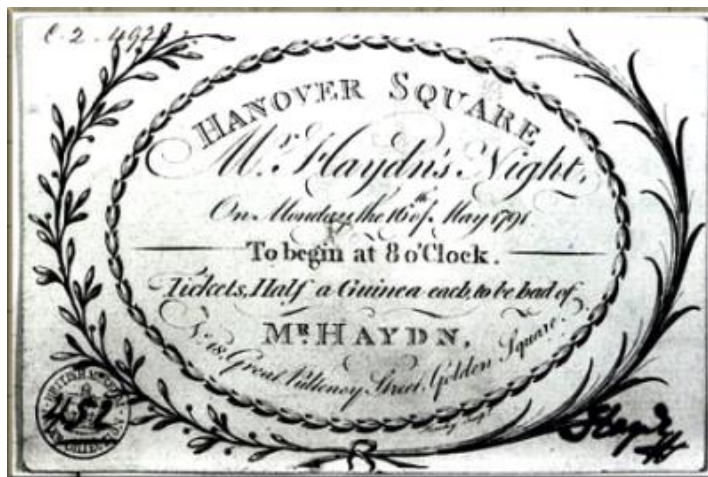 C. 2. 492
HANOVER SQUARE
Mr. Haydn's Night,
On Monday the 16th of May 1791
To begin at 8 o'Clock.
Tickets, Half a Guinea each, to be had of
MR. HAYDN,
No. 18. Great Pulteney Street, Golden Square.
BRITISH
452